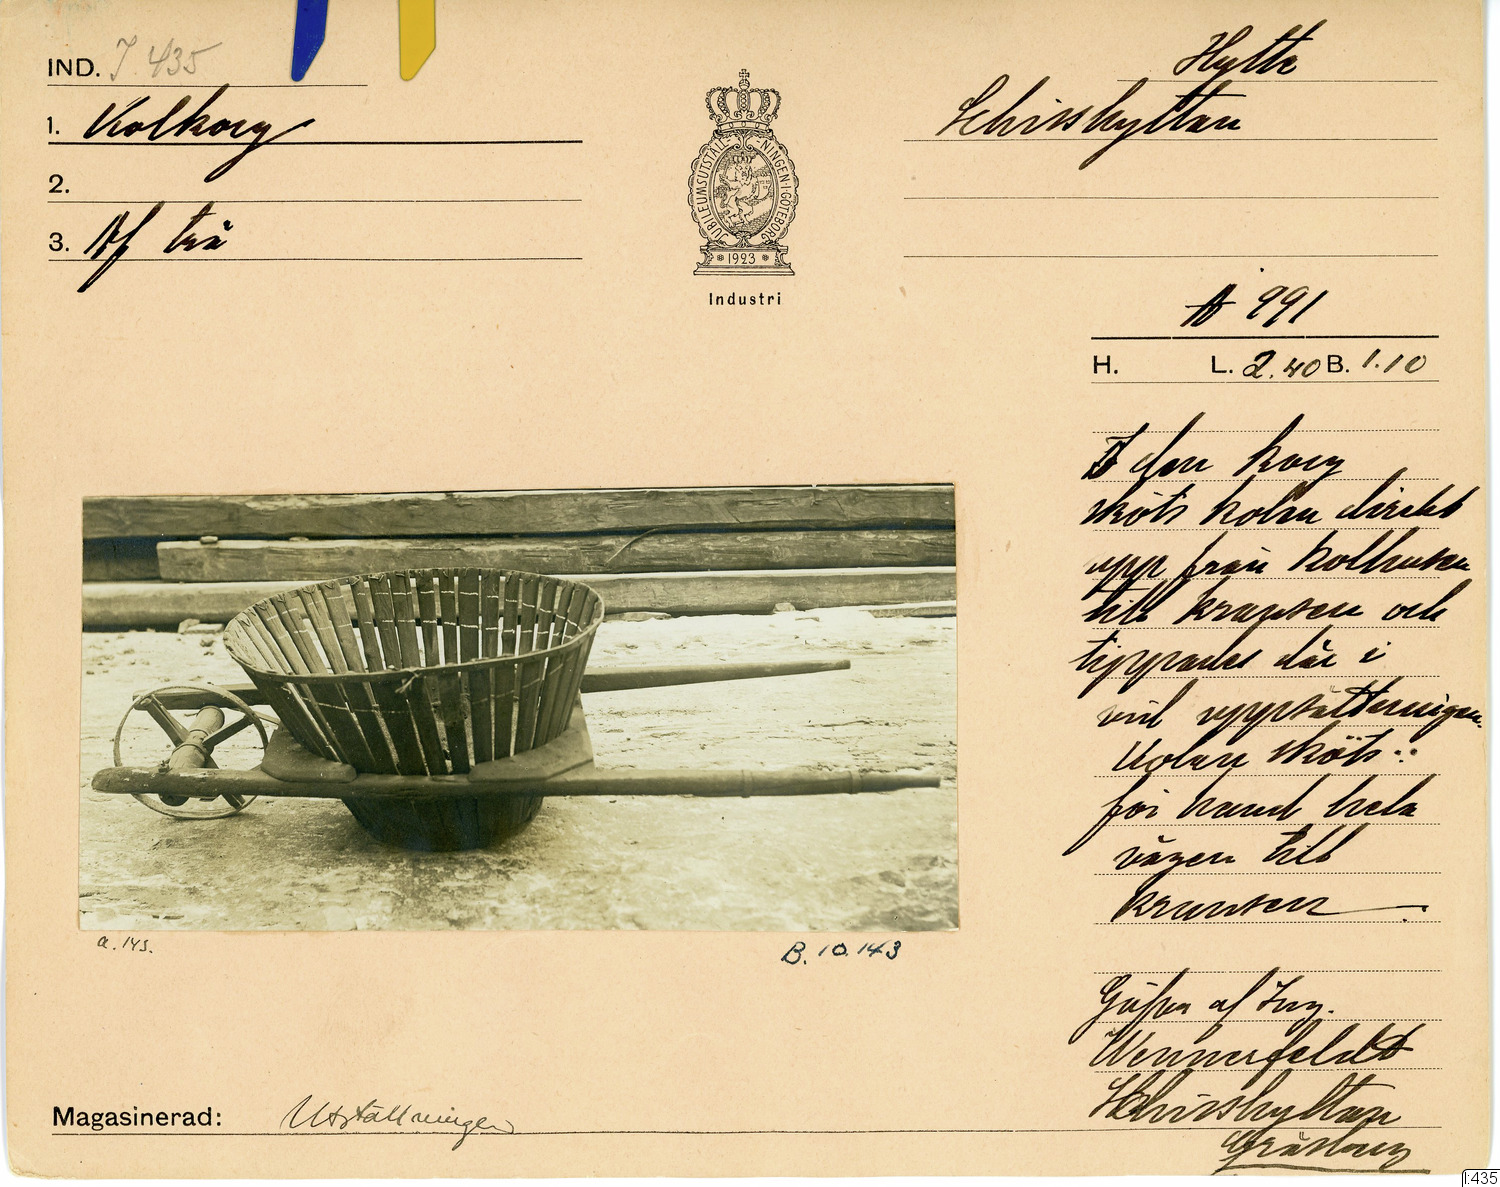 IND. I 435
1. Kolkorg
2.
3. Af trä
JUBILEUMSUTSTÄLL-NINGEN·I·GÖTEBORG
1923
Industri
Hytte
Schisshyttan
A 991
H. L. 2.40 B. 1.10
I den korg
sköts kolen direkt
upp från kolhusen
till kransen och
tippades där i
vid uppsättningen.
Kolen sköts
för hand hela
vägen till
kransen
Gåfva af Ing.
Wennerfeldt
Schisshyttan
Gräsberg
a. 143.
B. 10.143
Magasinerad: Utställningen
I:435